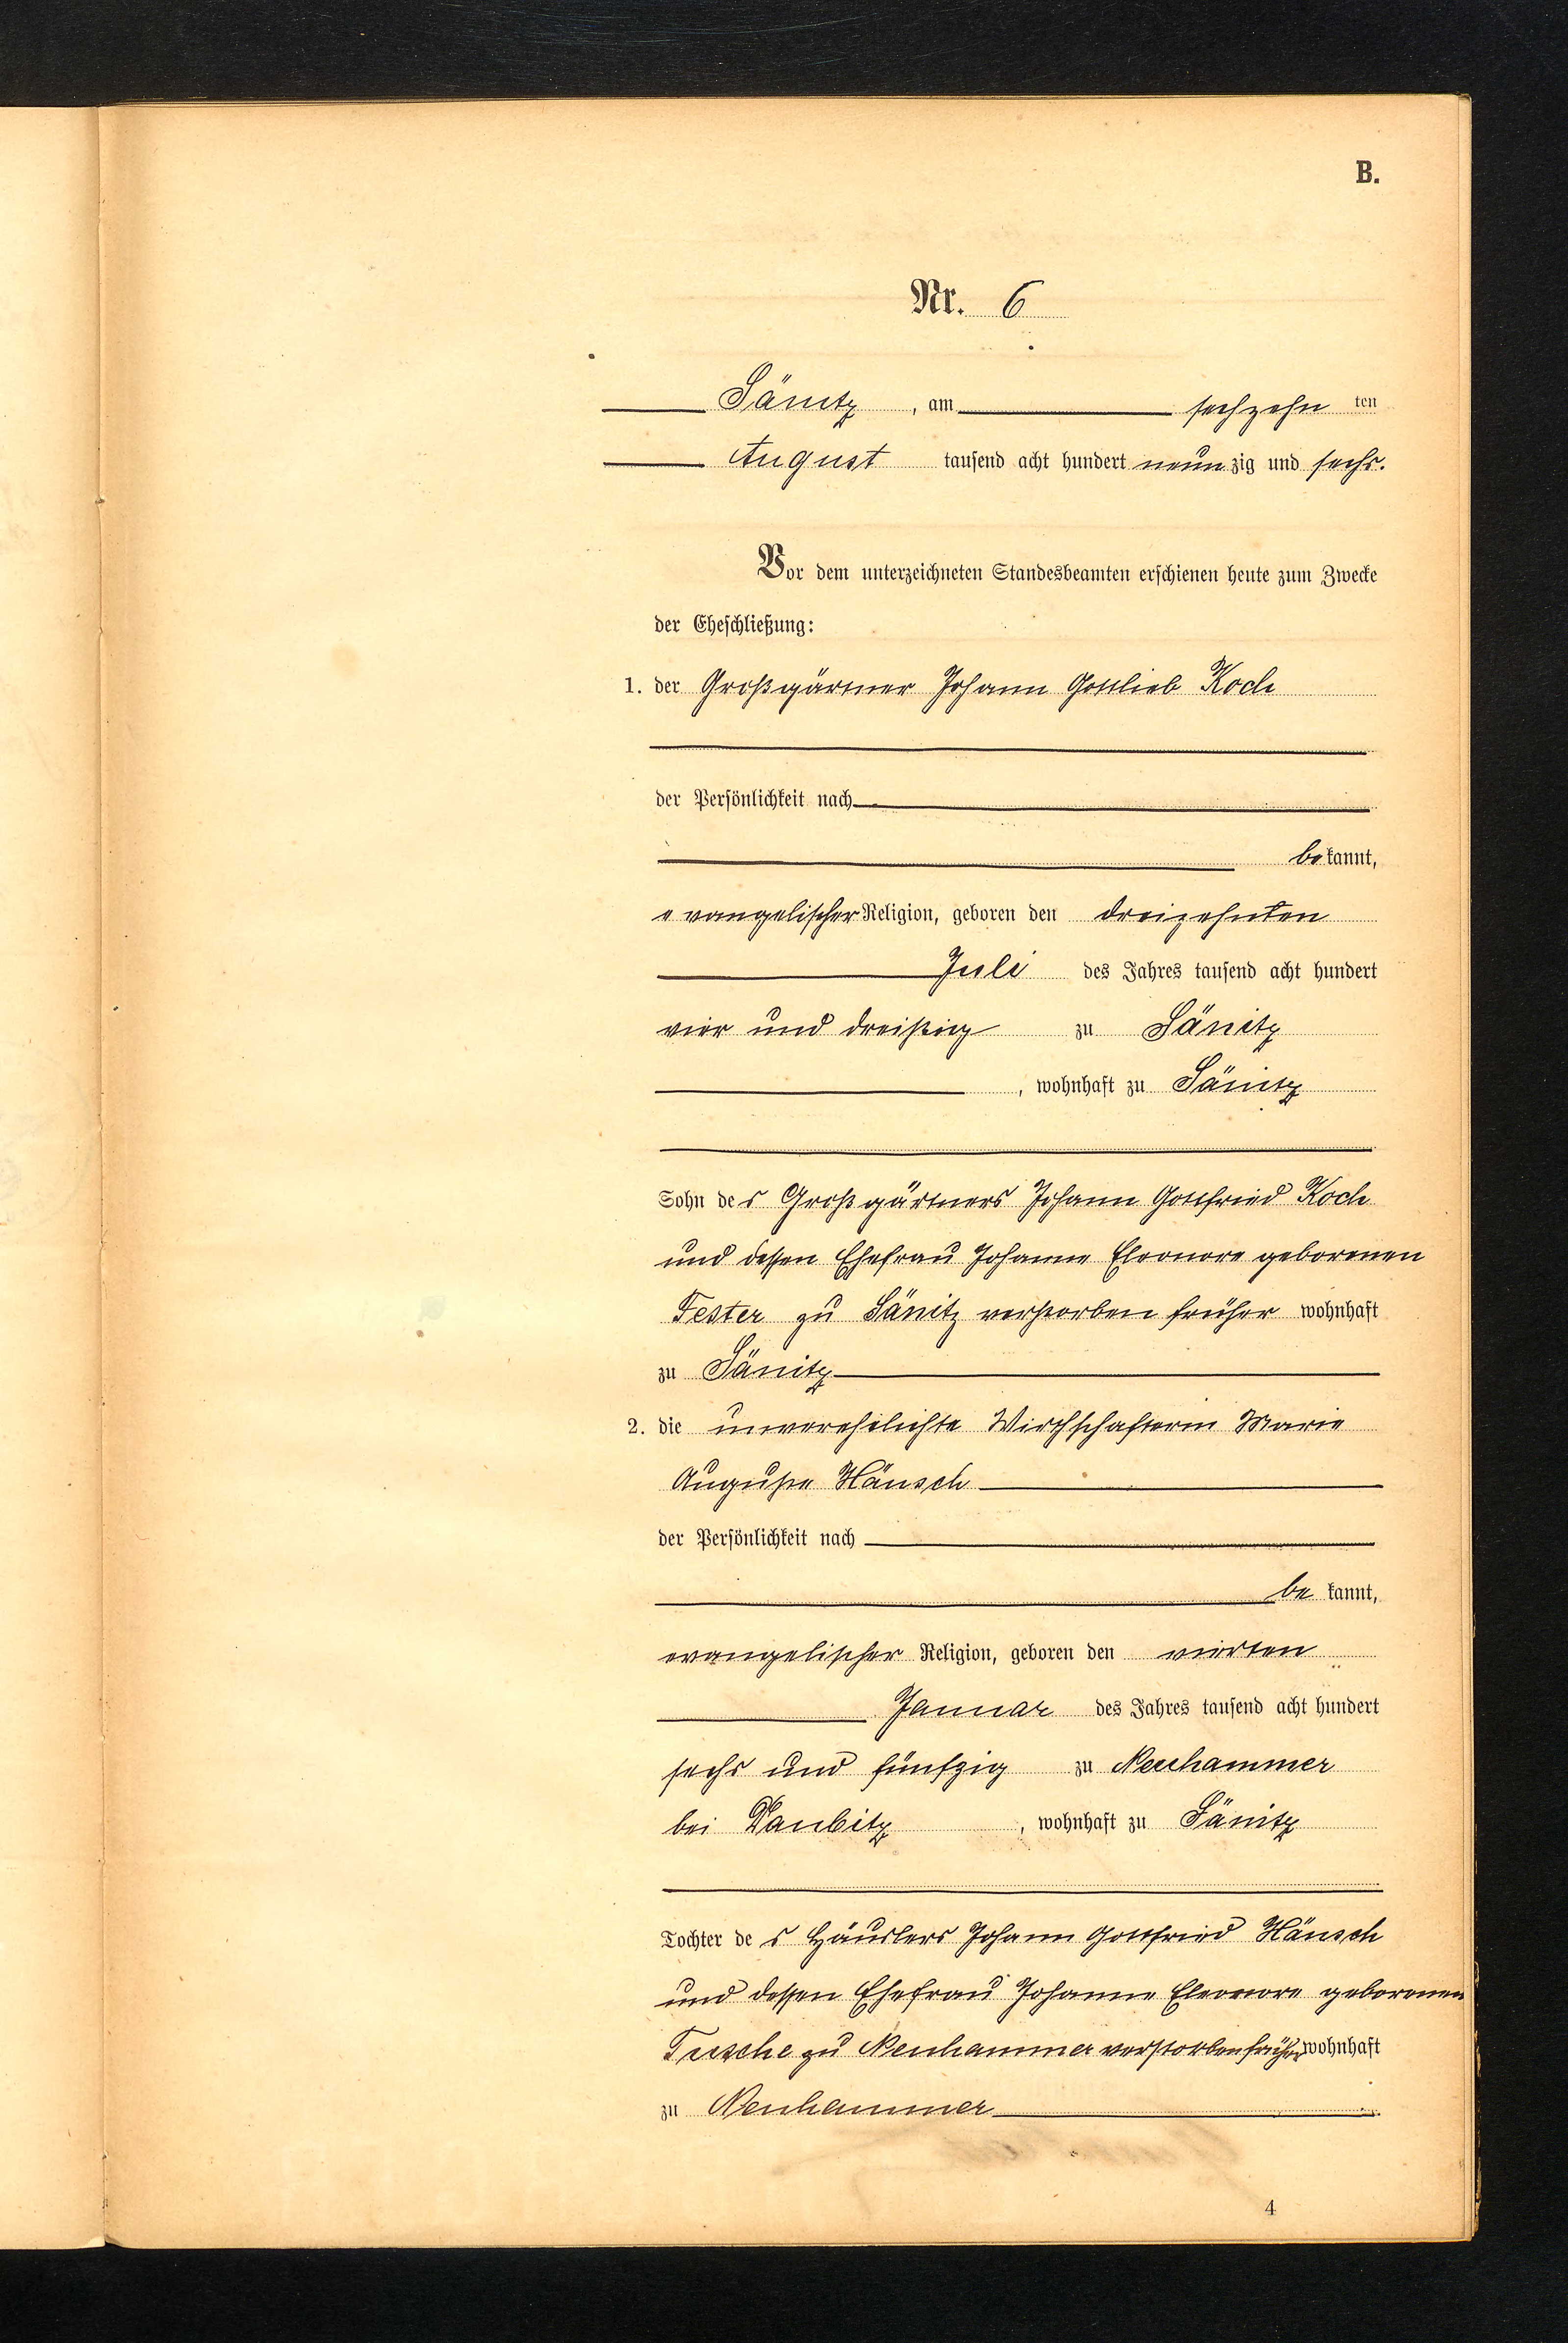 B.
Nr. 6
Sänitz, am sechzehn ten
August tausend acht hundert neun zig und sechs.
Vor dem unterzeichneten Standesbeamten erschienen heute zum Zwecke
der Eheschließung:
1. der Großgärtner Johann Gottlieb Koch
der Persönlichkeit nach
be kannt,
evangelischer Religion, geboren den dreizehnten
Juli des Jahres tausend acht hundert
vier und dreißig zu Sänitz
, wohnhaft zu Sänitz
Sohn des Großgärtners Johann Gottfried Koch
und dessen Ehefrau Johanne Eleonore geborenen
Fester zu Sänitz verstorben früher wohnhaft
zu Sänitz
2. die unverehelichte Wirthschafterin Marie
Auguste Hänsch
der Persönlichkeit nach
be kannt,
evangelischer Religion, geboren den vierten
Januar des Jahres tausend acht hundert
sechs und fünfzig zu Neuhammer
bei Daubitz, wohnhaft zu Sänitz
Tochter des Häuslers Johann Gottfried Hänsch
und dessen Ehefrau Johanne Eleonore geborenen
zu Neuhammer verstorben früher wohnhaft
zu Neuhammer
4